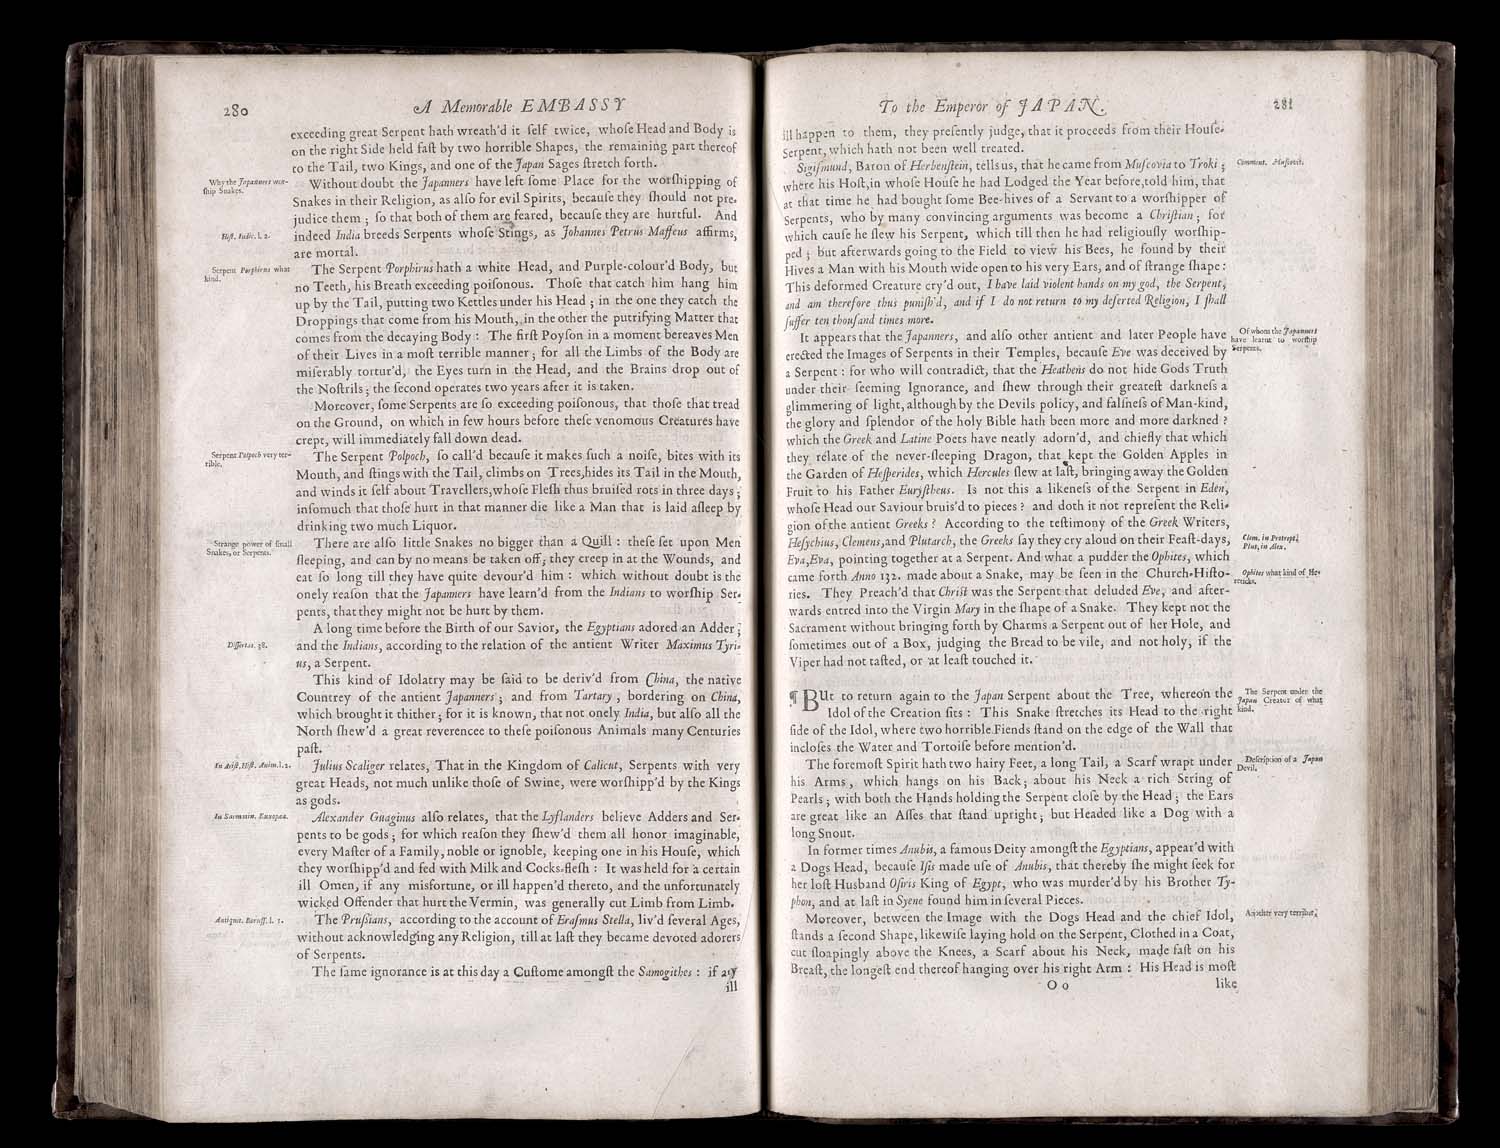 280
A Memorable EMBASSY
exceeding great Serpent hath wreath'd it ſelf twice, whoſe Head and Body is
on the right Side held faſt by two horrible Shapes, the remaining part thereof
to the Tail, two Kings, and one of the Japan Sages ſtretch forth.
Why the Japanners wor-
ſhip Snakes.
Without doubt the Japanners have left ſome Place for the worſhipping of
Snakes in their Religion, as alſo for evil Spirits, becauſe they ſhould not pre-
judice them ; ſo that both of them are feared, becauſe they are hurtful. And
Hiſt. Indic. l. 2.
indeed India breeds Serpents whoſe Stings, as Johannes Petrus Maffeus affirms,
are mortal.
Serpent Porphirus what
kind.
The Serpent Porphirus hath a white Head, and Purple-colour'd Body, but
no Teeth, his Breath exceeding poiſonous. Thoſe that catch him hang him
up by the Tail, putting two Kettles under his Head ; in the one they catch the
Droppings that come from his Mouth, in the other the putrifying Matter that
comes from the decaying Body : The firſt Poyſon in a moment bereaves Men
of their Lives in a moſt terrible manner ; for all the Limbs of the Body are
miſerably tortur'd, the Eyes turn in the Head, and the Brains drop out of
the Noſtrils ; the ſecond operates two years after it is taken.
Moreover, ſome Serpents are ſo exceeding poiſonous, that thoſe that tread
on the Ground, on which in few hours before theſe venomous Creatures have
crept, will immediately fall down dead.
Serpent Polpoch very ter-
rible.
The Serpent Polpoch, ſo call'd becauſe it makes ſuch a noiſe, bites with its
Mouth, and ſtings with the Tail, climbs on Trees, hides its Tail in the Mouth,
and winds it ſelf about Travellers, whoſe Fleſh thus bruiſed rots in three days ;
inſomuch that thoſe hurt in that manner die like a Man that is laid aſleep by
drinking two much Liquor.
Strange power of ſmall
Snakes, or Serpents.
There are alſo little Snakes no bigger than a Quill : theſe ſet upon Men
ſleeping, and can by no means be taken off ; they creep in at the Wounds, and
eat ſo long till they have quite devour'd him : which without doubt is the
onely reaſon that the Japanners have learn'd from the Indians to worſhip Ser-
pents, that they might not be hurt by them.
A long time before the Birth of our Savior, the Egyptians adored an Adder ;
Diſſertat. 38.
and the Indians, according to the relation of the antient Writer Maximus Tyri-
us, a Serpent.
This kind of Idolatry may be ſaid to be deriv'd from China, the native
Countrey of the antient Japanners ; and from Tartary , bordering on China,
which brought it thither ; for it is known, that not onely India, but alſo all the
North ſhew'd a great reverencee to theſe poiſonous Animals many Centuries
paſt.
In Ariſt. Hiſt. Anim. l. 2.
Julius Scaliger relates, That in the Kingdom of Calicut, Serpents with very
great Heads, not much unlike thoſe of Swine, were worſhipp'd by the Kings
as gods.
In Sarmatin. Europæa.
Alexander Guaginus alſo relates, that the Lyſlanders believe Adders and Ser-
pents to be gods ; for which reaſon they ſhew'd them all honor imaginable,
every Maſter of a Family, noble or ignoble, keeping one in his Houſe, which
they worſhipp'd and fed with Milk and Cocks-fleſh : It was held for a certain
ill Omen, if any misfortune, or ill happen'd thereto, and the unfortunately
wicked Offender that hurt the Vermin, was generally cut Limb from Limb.
Antiquit. Boruſſ. l. 1.
The Pruſsians, according to the account of Eraſmus Stella, liv'd ſeveral Ages,
without acknowledging any Religion, till at laſt they became devoted adorers
of Serpents.
The ſame ignorance is at this day a Cuſtome amongſt the Samogithes : if any
ill
To the Emperor of JAPAN.
281
ill happen to them, they preſently judge, that it proceeds from their Houſe-
Serpent, which hath not been well treated.
Comment. Muſcovit.
Sigiſmund, Baron of Herbenſtein, tells us, that he came from Muſcovia to Troki ;
where his Hoſt, in whoſe Houſe he had Lodged the Year before, told him, that
at that time he had bought ſome Bee-hives of a Servant to a worſhipper of
Serpents, who by many convincing arguments was become a Chriſtian ; for
which cauſe he ſlew his Serpent, which till then he had religiouſly worſhip-
ped ; but afterwards going to the Field to view his Bees, he found by their
Hives a Man with his Mouth wide open to his very Ears, and of ſtrange ſhape :
This deformed Creature cry'd out, I have laid violent hands on my god, the Serpent,
and am therefore thus puniſh'd, and if I do not return to my deſerted Religion, I ſhall
ſuffer ten thouſand times more.
Of whom the Japanners
have learnt to worſhip
Serpents.
It appears that the Japanners, and alſo other antient and later People have
erected the Images of Serpents in their Temples, becauſe Eve was deceived by
a Serpent : for who will contradict, that the Heathens do not hide Gods Truth
under their ſeeming Ignorance, and ſhew through their greateſt darkneſs a
glimmering of light, although by the Devils policy, and falſneſs of Man-kind,
the glory and ſplendor of the holy Bible hath been more and more darkned ?
which the Greek and Latine Poets have neatly adorn'd, and chiefly that which
they relate of the never-ſleeping Dragon, that kept the Golden Apples in
the Garden of Heſperides, which Hercules ſlew at laſt, bringing away the Golden
Fruit to his Father Euryſtheus. Is not this a likeneſs of the Serpent in Eden,
whoſe Head our Saviour bruis'd to pieces ? and doth it not repreſent the Reli-
gion of the antient Greeks ? According to the teſtimony of the Greek Writers,
Clem. in Protrept.
Plut. in Alex.
Heſychius, Clemens, and Plutarch, the Greeks ſay they cry aloud on their Feaſt-days,
Eva, Eva, pointing together at a Serpent. And what a pudder the Ophites, which
Ophites what kind of He-
reticks.
came forth Anno 132. made about a Snake, may be ſeen in the Church-Hiſto-
ries. They Preach'd that Chriſt was the Serpent that deluded Eve, and after-
wards entred into the Virgin Mary in the ſhape of a Snake. They kept not the
Sacrament without bringing forth by Charms a Serpent out of her Hole, and
ſometimes out of a Box, judging the Bread to be vile, and not holy, if the
Viper had not taſted, or at leaſt touched it.
The Serpent under the
Japan Creator of what
kind.
¶ BUt to return again to the Japan Serpent about the Tree, whereon the
Idol of the Creation ſits : This Snake ſtretches its Head to the right
ſide of the Idol, where two horrible Fiends ſtand on the edge of the Wall that
incloſes the Water and Tortoiſe before mention'd.
Deſcription of a Japan
Devil.
The foremoſt Spirit hath two hairy Feet, a long Tail, a Scarf wrapt under
his Arms, which hangs on his Back ; about his Neck a rich String of
Pearls ; with both the Hands holding the Serpent cloſe by the Head ; the Ears
are great like an Aſſes that ſtand upright ; but Headed like a Dog with a
long Snout.
In former times Anubis, a famous Deity amongſt the Egyptians, appear'd with
a Dogs Head, becauſe Iſis made uſe of Anubis, that thereby ſhe might ſeek for
her loſt Husband Oſiris King of Egypt, who was murder'd by his Brother Ty-
phon, and at laſt in Syene found him in ſeveral Pieces.
Another very terrible.
Moreover, between the Image with the Dogs Head and the chief Idol,
ſtands a ſecond Shape, likewiſe laying hold on the Serpent, Clothed in a Coat,
cut ſloapingly above the Knees, a Scarf about his Neck, made faſt on his
Breaſt, the longeſt end thereof hanging over his right Arm : His Head is moſt
O o
like